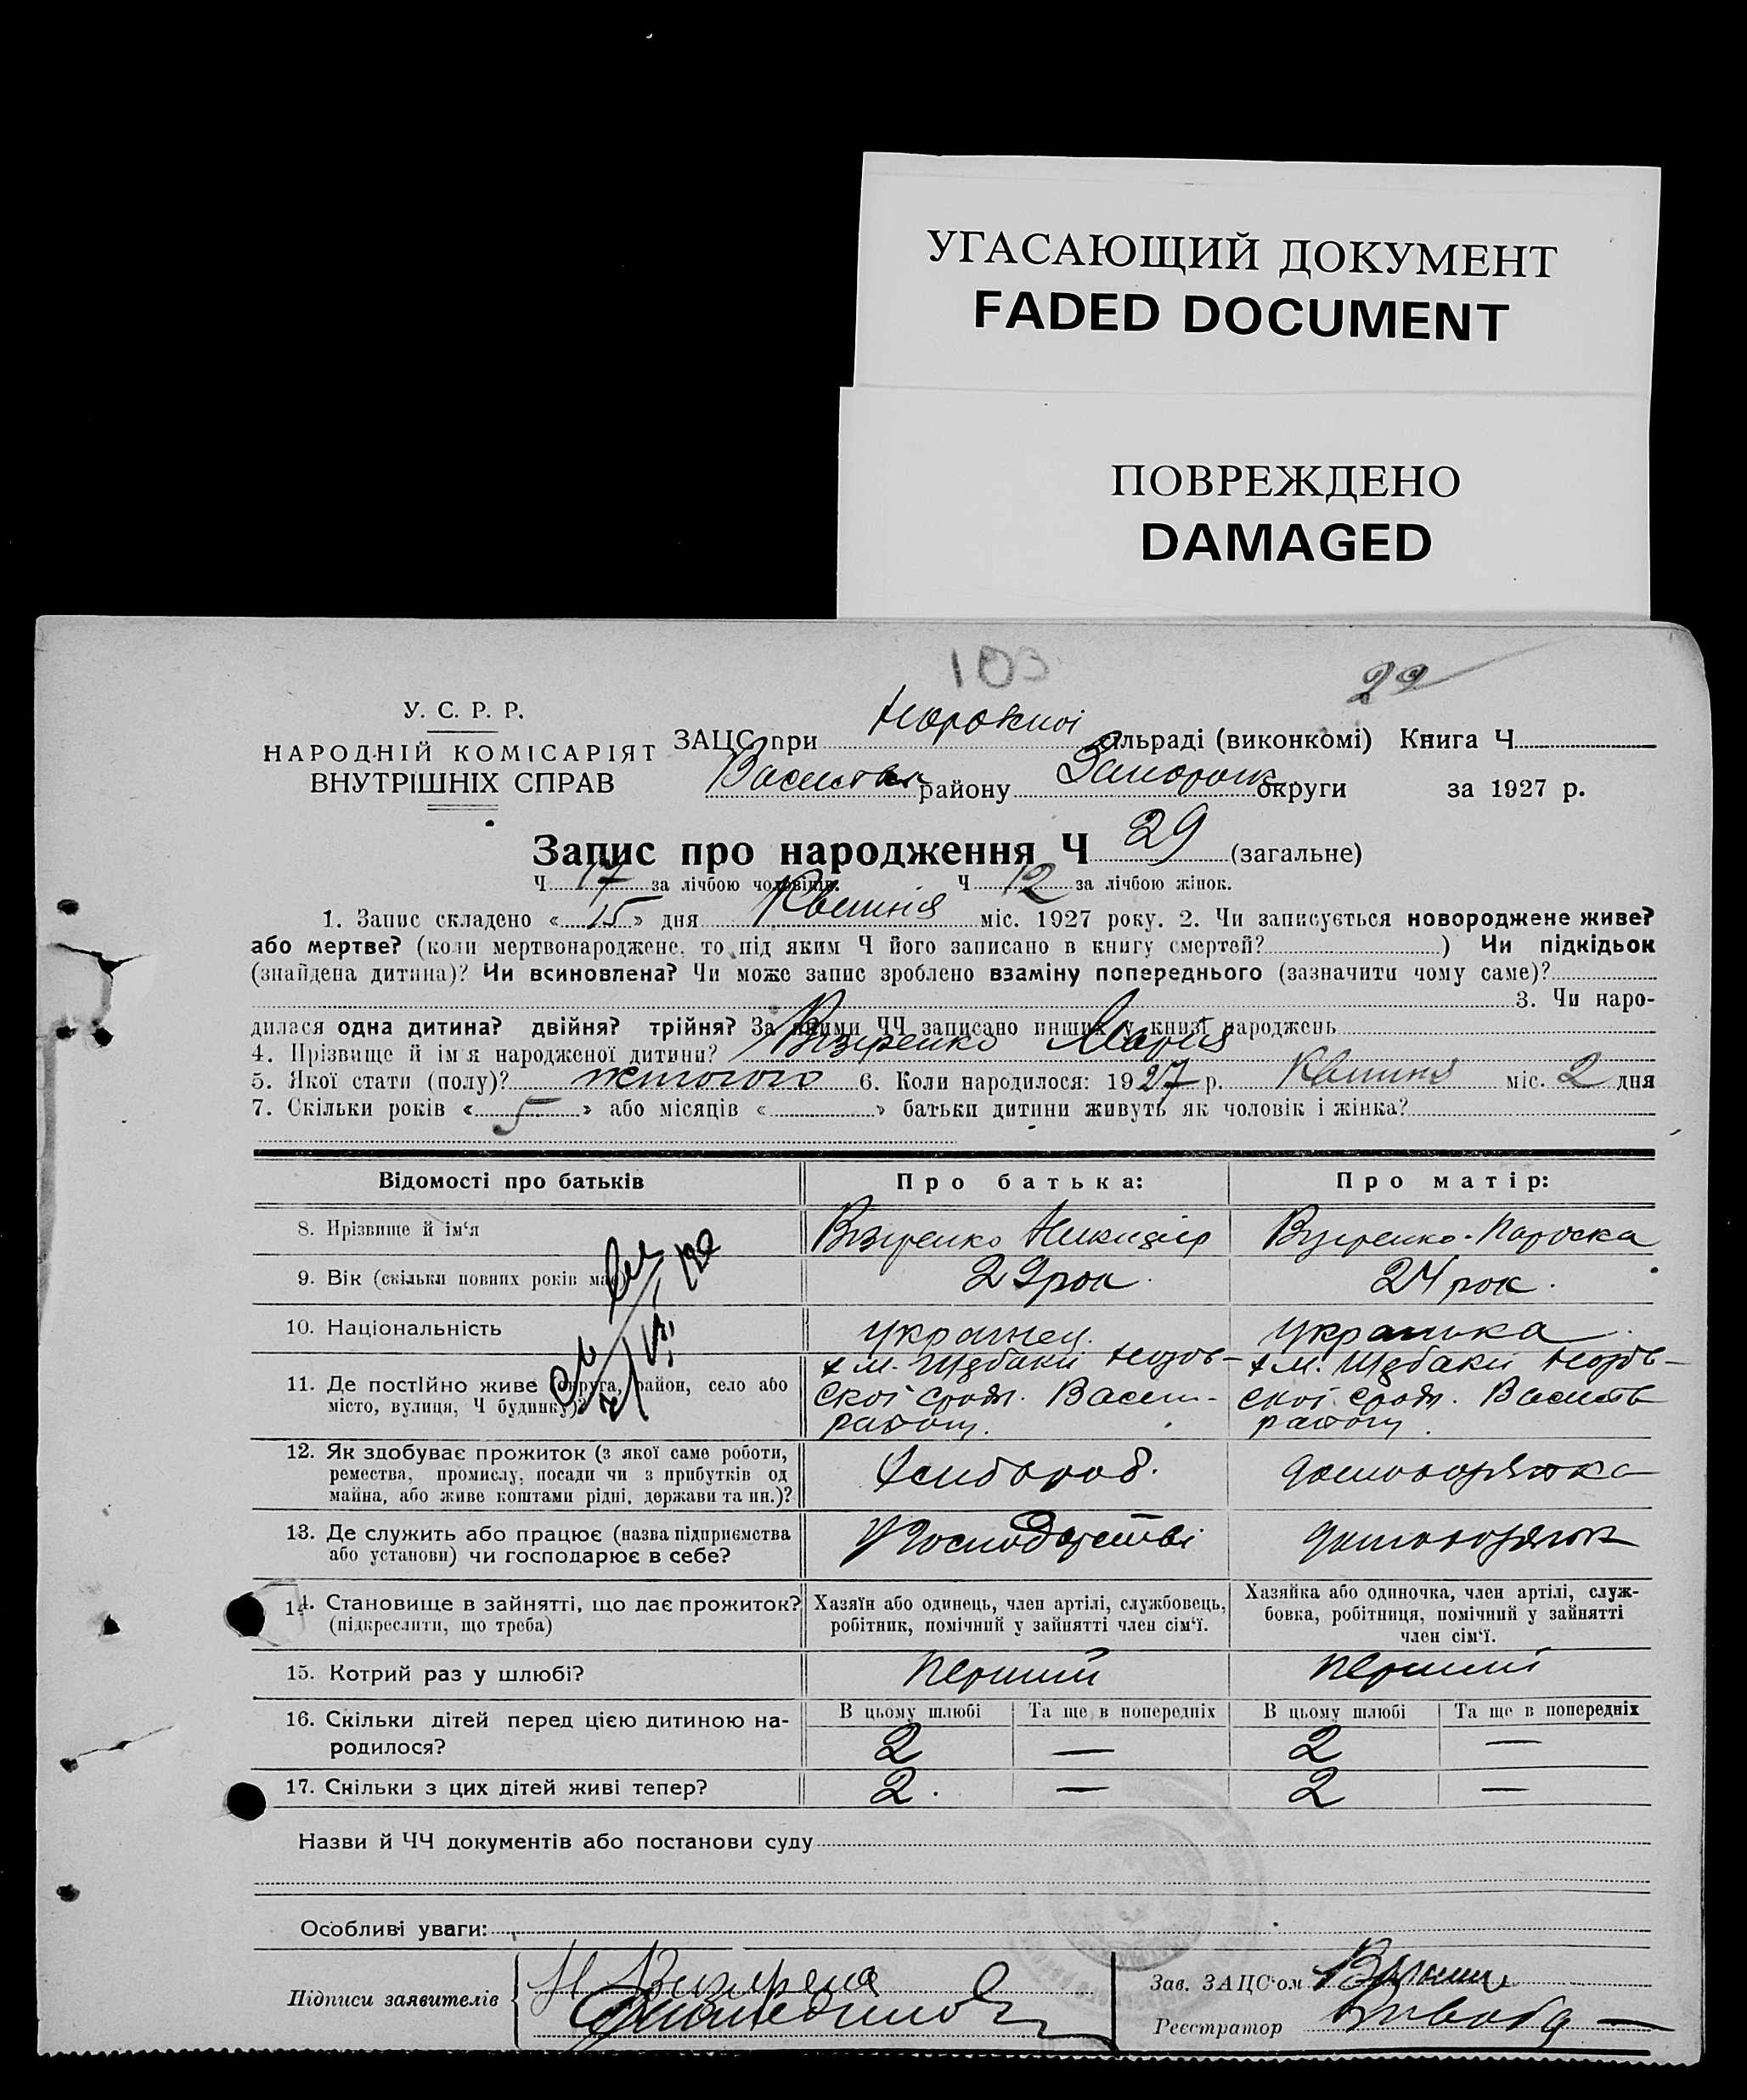 УГАСАЮЩИЙ ДОКУМЕНТ
FADED DOCUMENT
ПОВРЕЖДЕНО
DAMAGED
103
29
У. С. Р. Р.
НАРОДНІЙ КОМІСАРІЯТ
ВНУТРІШНІХ СПРАВ
ЗАЦС при сільраді (виконкомі) Книга Ч
району Запорож округи за 1927 р.
Запис про народження Ч 29 (загальне)
Ч 17 за лічбою чоловіків. Ч 12 за лічбою жінок.
1. Запис складено « 15 » дня Квітня міс. 1927 року. 2. Чи записується новороджене живе?
або мертве? (коли мертвонароджене, то під яким Ч його записано в книгу смертей? ) Чи підкідьок
(знайдена дитина)? Чи всиновлена? Чи може запис зроблено взаміну попереднього (зазначити чому саме)?
3. Чи наро-
дилася одна дитина? двійня? трійня? За якими ЧЧ записано инших у книзі народжень
4. Прізвище й ім'я народженої дитини? Візіренко Марія
5. Якої стати (полу)? жіночого 6. Коли народилося: 1927 р. Квітня міс. 2 дня
7. Скільки років « 5 » або місяців « » батьки дитини живуть як чоловік і жінка?
Відомості про батьків Про батька: Про матір:
8. Прізвище й ім'я Візіренко Никифір Візіренко - Пароска
9. Вік (скільки повних років має) 29 рок. 24 рок.
10. Національність українец. українка
11. Де постійно живе (округа, район, село або
місто, вулиця, Ч будинку)?
району. району.
12. Як здобуває прожиток (з якої саме роботи,
ремества, промислу, посади чи з прибутків од
майна, або живе коштами рідні, держави та ин.)?
Хлібороб. домогорятка
13. Де служить або працює (назва підприємства
або установи) чи господарює в себе?
У господарстві
14. Становище в зайнятті, що дає прожиток?
(підкреслити, що треба)
Хазяїн або одинець, член артілі, службовець,
робітник, помічний у зайнятті член сім'ї.
Хазяйка або одиночка, член артілі, служ-
бовка, робітниця, помічний у зайнятті
член сім'ї.
15. Котрий раз у шлюбі? перший перший
16. Скільки дітей перед цією дитиною на-
родилося?
В цьому шлюбі Та ще в попередніх В цьому шлюбі Та ще в попередніх
2 — 2 —
17. Скільки з цих дітей живі тепер? 2. — 2 —
Назви й ЧЧ документів або постанови суду
Особливі уваги:
Підписи заявителів
Зав. ЗАЦС'ом
Реєстратор